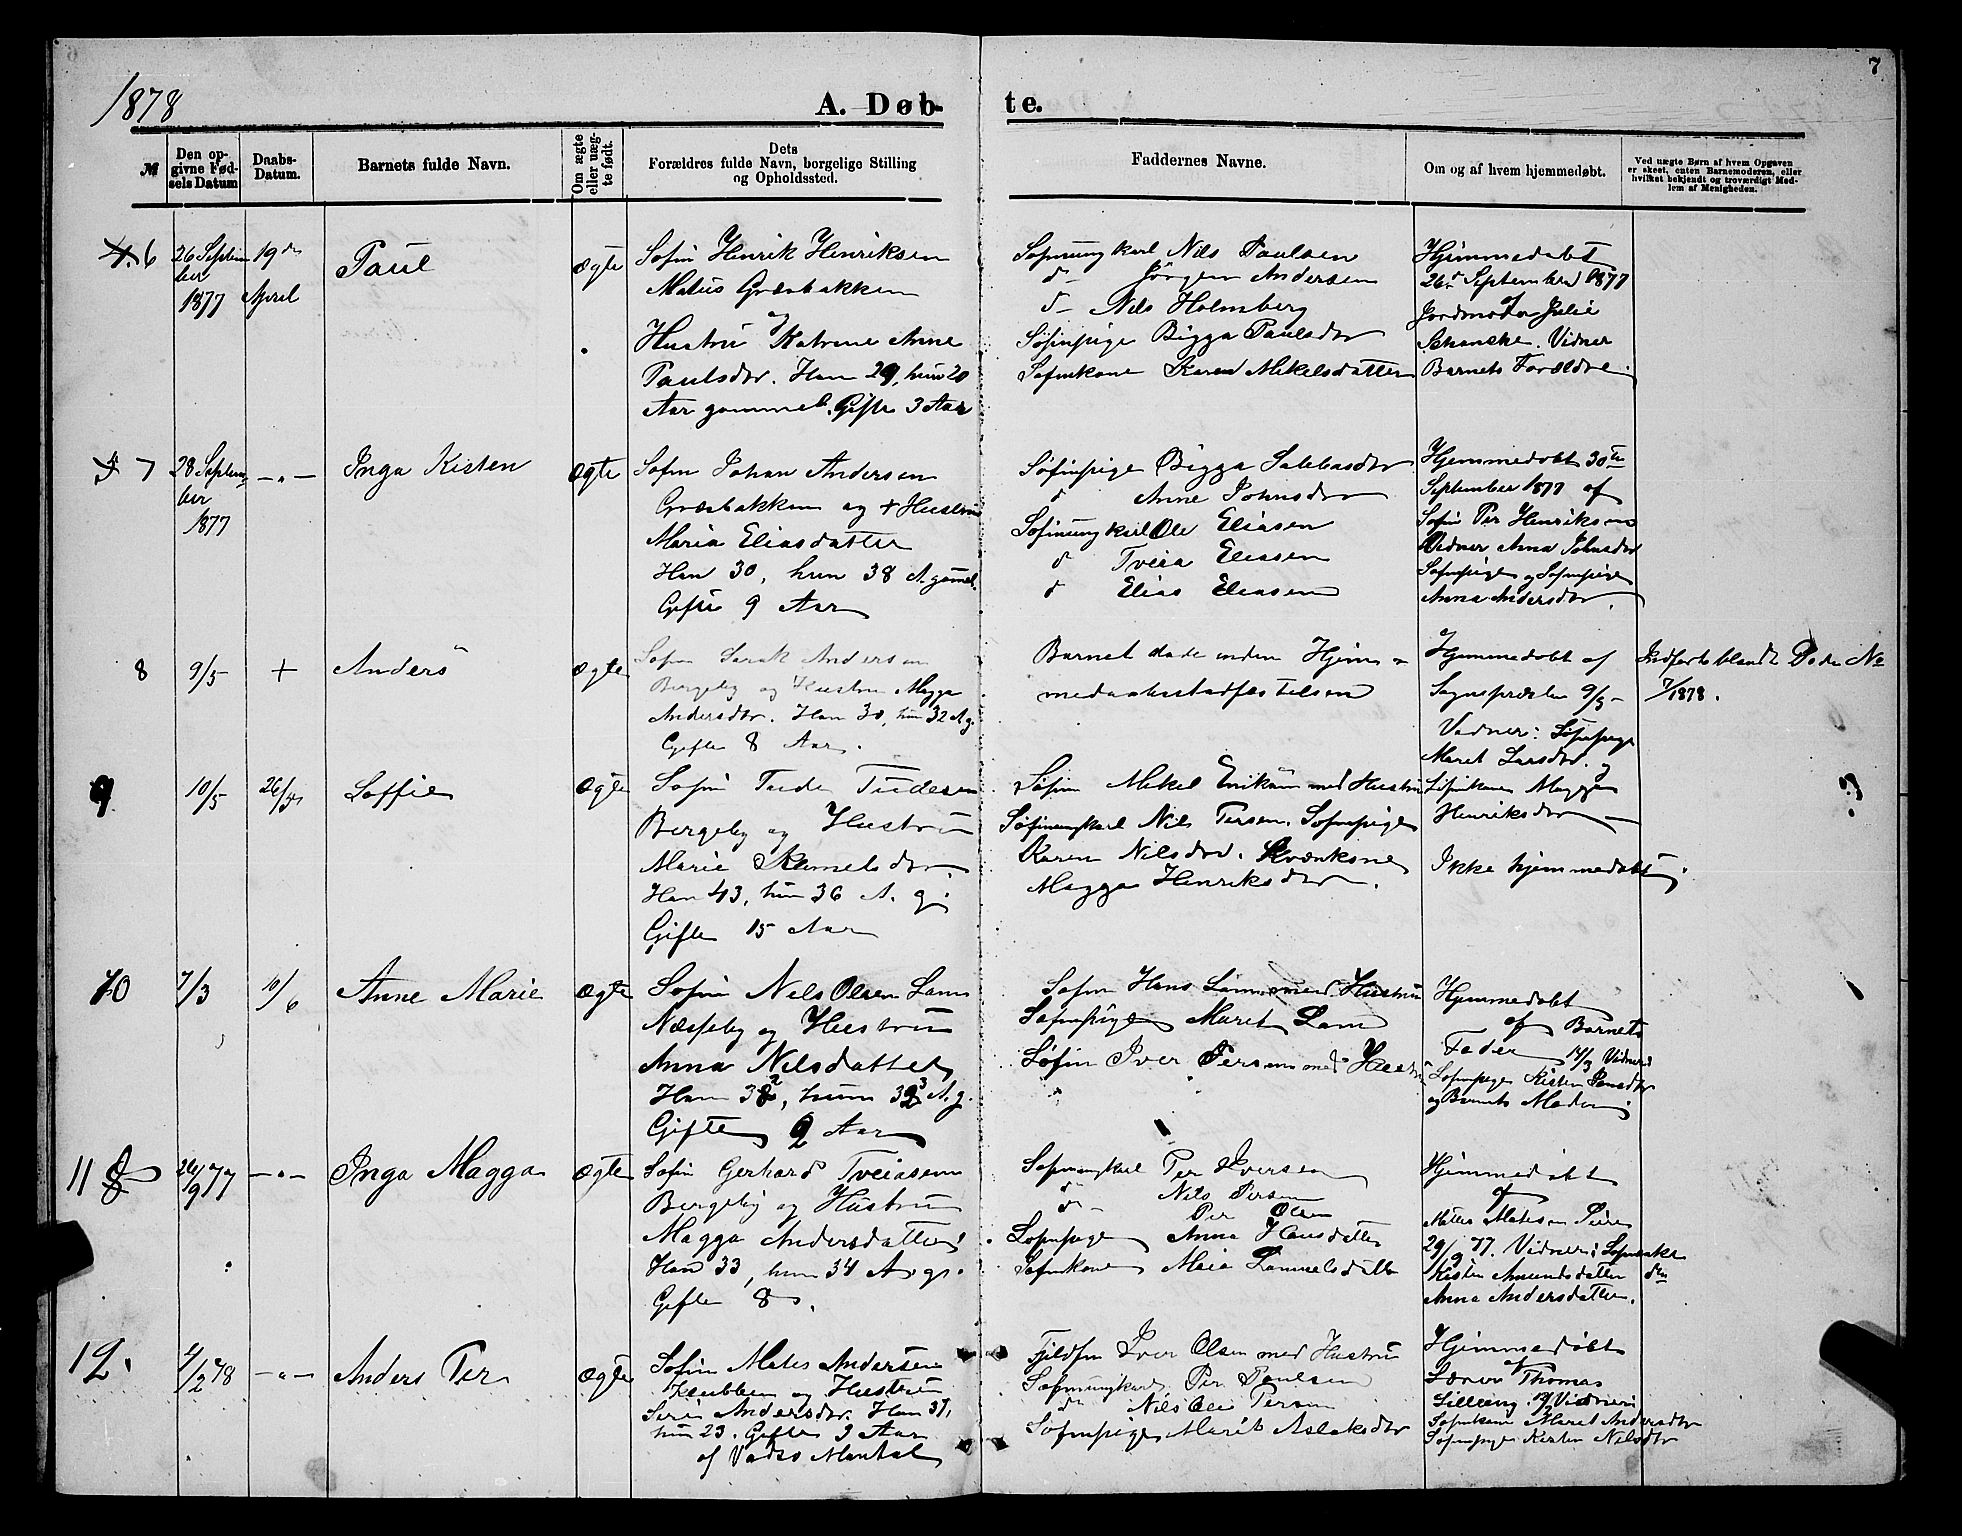 1878
7
A. Døb-
te.
№
Den op-
givne Fød-
sels Datum
Daabs-
Datum.
Barnets fulde Navn.
Om ægte
eller uæg-
te født.
Dets
Forældres fulde Navn, borgelige Stilling
og Opholdssted.
Faddernes Navne.
Om og af hvem hjemmedøbt.
Ved uægte Børn af hvem Opgaven
er skeet, enten Barnemoderen, eller
hvilket bekjendt og troværdigt Med-
lem af Menigheden.
6
26 Septem
ber
1877
19de
April
Paul
ægte
Søfin Henrik Henriksen
Matus Græsbakken
og
Hustru Katrine Anne
Paulsdtr. Han 29, hun 20
Aar gammel. Gifte 3 Aar
Søfinungkarl Nils Paulsen
d- Jörgen Andersen
d- Nils Holmberg
Søfinpige Bigga Paulsdtr
Søfinkone Karen Mikelsdatter
Hjemmedøbt
26de September 1877
af
Jordmoder Julie
Schanche. Vidner
Barnets Forældre
7
28 Septem
ber
1877
-"-
Inga Kisten
ægte
Søfin Johan Andersen
Græsbakken og + Hustru
Maria Eliasdatter
Han 30, hun 38 A. gamel.
Gifte 9 Aar
Søfinpige Bigga Salebasdtr
d Anne Johnsdtr
Søfinungkarl Ole Eliasen
d Tveia Eliasen
d Elias Eliasen
Hjemmedøbt 30te
September 1877 af
Søfin Per Henriksen
Vidner Anna Johnsdtr
Søfinpige og Søfinpige
Anna Andersdtr.
8
9/5
+
Anders
ægte
Søfin Israk Andersen
Bergeby og Hustru Magga
Andersdtr. Han 30, hun 32 A. g.
Gifte 8 Aar.
Barnet døde inden Hjem-
medaabsstadfæstelsen
Hjemmedøbt af
Sognspræsten 9/5
Vidner: Søfinpige
Maret Larsdtr. og
Indført blandt Døde No
7/1878.
9
10/5
26/5
Soffie
ægte
Søfin Tude Tudesen
Bergeby og Hustru
Marie Samelsdtr.
Han 43, hun 36 A. g.
Gifte 15 Aar
Søfin Mikel Eriksen med Hustru
Søfinungkarl Nils Persen. Søfinpige
Karen Nilsdtr. Kvænkone
Magga Henriksdtr.
Søfinkone Magga
Henriksdtr
Ikke hjemmedøbt.
?
10
7/3
10/6
Anne Marie
ægte
Søfin Nils Olsen Lam
Næsseby og Hustru
Anna Nilsdatter
Han 382, hun 323 A. g.
Gifte 2 Aar
Søfin Hans Lam med Hustru
Søfinpige Maret Lam
Søfin Iver Persen med Hustru
Hjemmedøbt
af Barnets
Fader 14/3 Vidner:
Søfinpige Kisten
og Barnets Moder
11
26/9 77
-"-
Inga Magga
ægte
Søfin Gerhard Tveiasen
Bergeby og Hustru
Magga Andersdatter
Han 33, hun 34 A. g.
Gifte 8.
Søfinungkarl Per Iversen
d- Nils Persen
d- Per Olsen
Søfinpige Anna Hansdatter
Søfinkone Maia Sammelsdatter
Hjemmedøbt
af
Mattis Matisen
29/9 77. Vidner: Søfinenke
Kisten Amundsdatter den
Anna Andersdatter.
12.
4/2 78
-"-
Anders Per
ægte
Søfin Mates Andersen
Klubben og Hustru
Siri Andersdtr. Han 37,
hun 23. Gifte 3 Aar
af Vadsø Mantal
Fjeldfin Iver Olsen med Hustru
Søfinungkarl Per Paulsen
d- Nils Ole Persen
Søfinpige Marit Aslaksdtr
Hjemmedøbt
af
Lærer Thomas
Lilleeng. Vidner:
Søfinkone Maret Andersdtr
Søfinpige Kirsten Nilsdtr